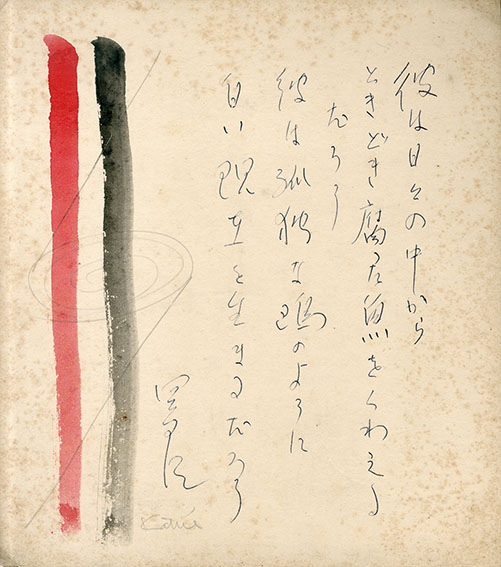 彼は日々の中から
ときどき腐魚をくわえる
だろう
彼は孤独なのように
白い現在を生きるだろう